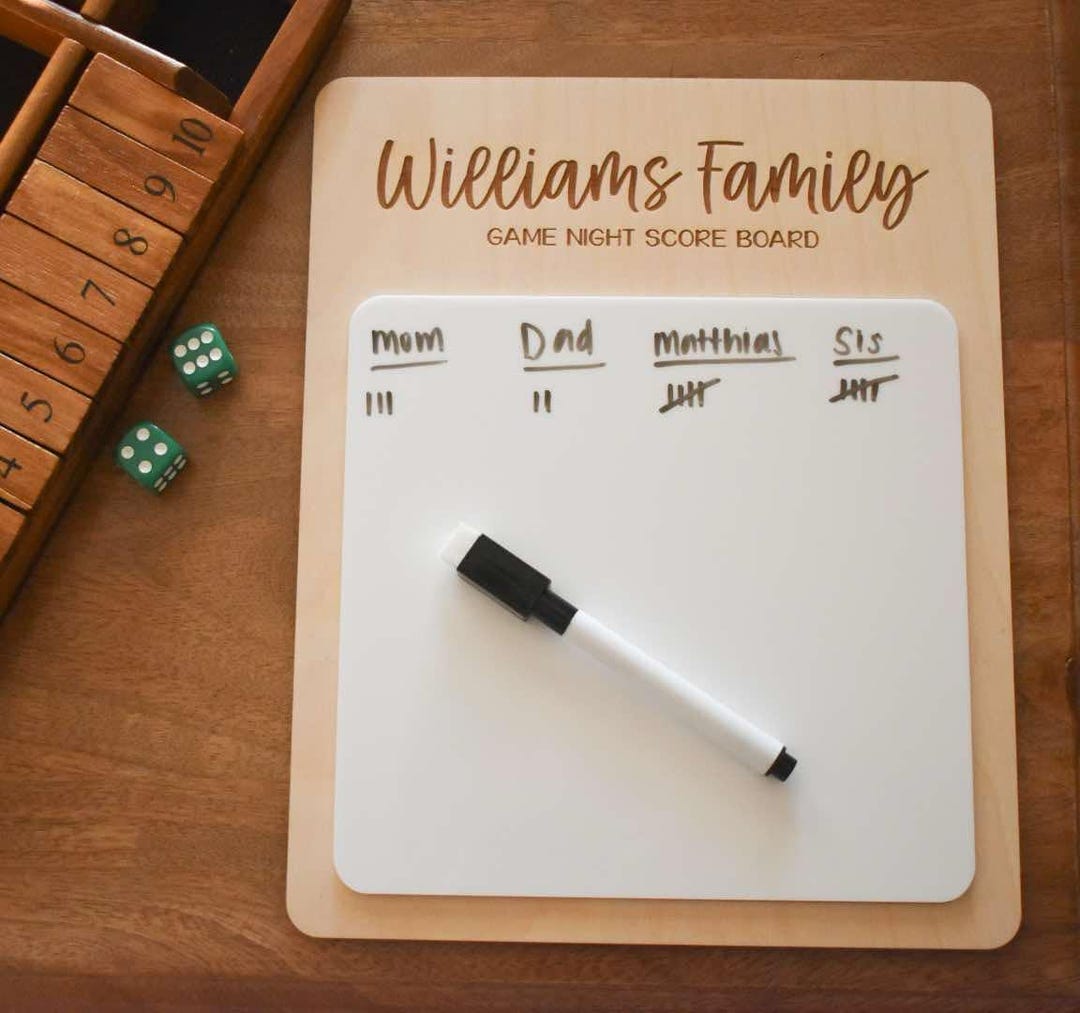 Williams Family
GAME NIGHT SCORE BOARD
Mom Dad Matthias Sis
10
9
8
7
6
5
4